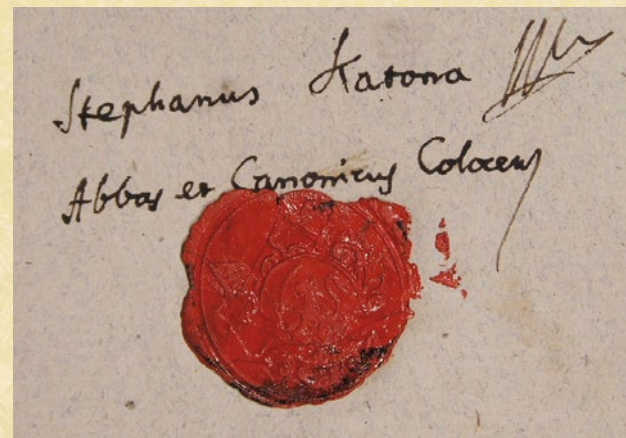 Stephanus Katona
Abbas et Canonicus Colocens